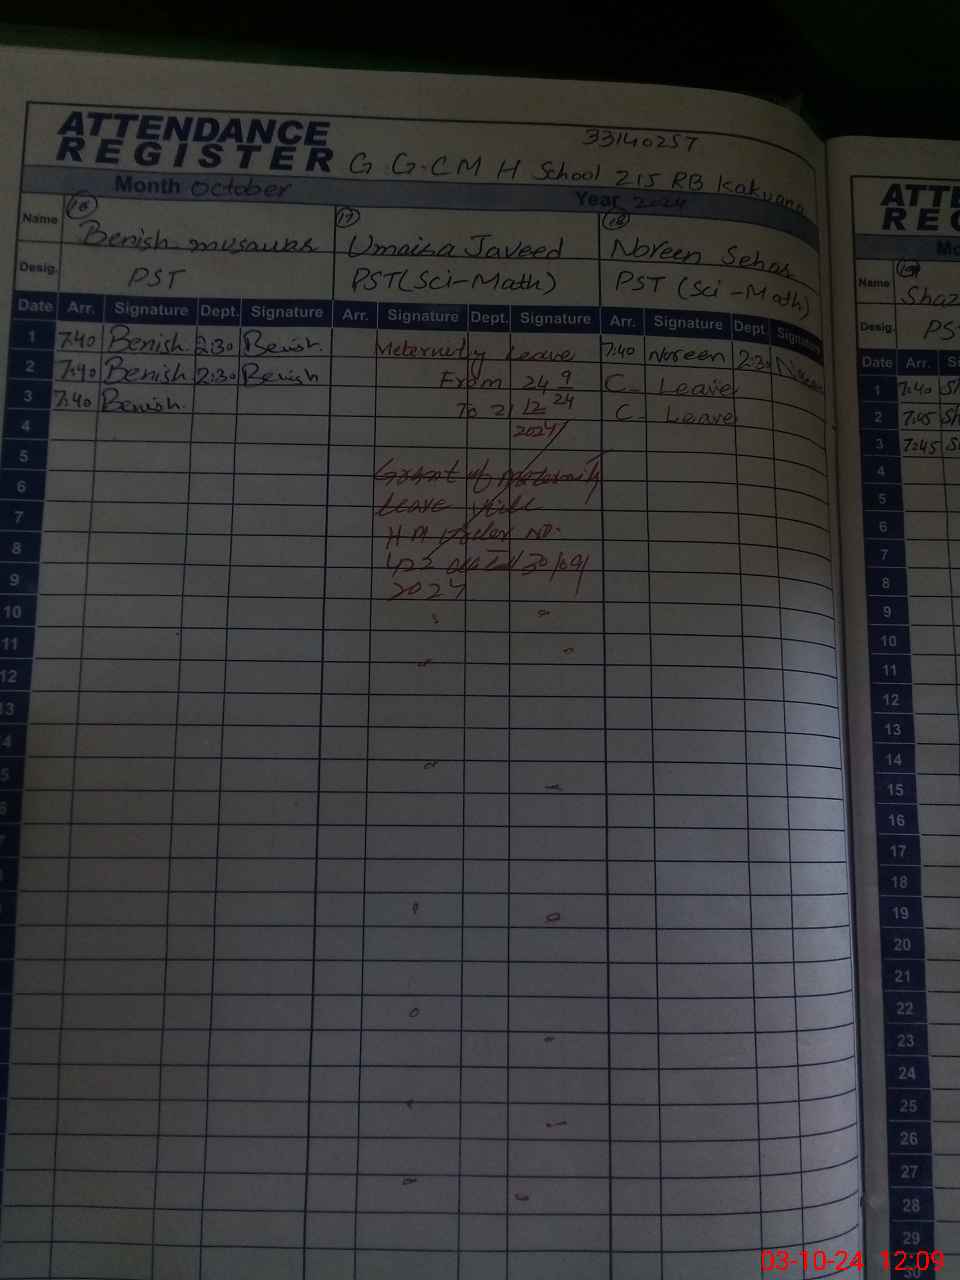 ATTENDANCE
REGISTER
33140257
G.G.C M H School 215 RB Kakuana
Month October Year 2024
Name 16 Benish 17 Umaisa Javeed 18 Noreen Sehar
Desig. PST PST(Sci-Math) PST (Sci-Math)
Date Arr. Signature Dept. Signature Arr. Signature Dept. Signature Arr. Signature Dept. Signature
1 7:40 Benish. 2:30 Benish. Meternity Leave 7:40 Noreen 2:30
2 7:40 Benish 2:30 Benish From 24 9/24 C- Leave
3 7:40 Benish. To 21 12 C- Leave
4 2024
5
6 Grant of maternity
7 Leave
8 No.
9 dated 30/09/
2024
10
11
12
13
4
5
6
7
ATTE
REG
Mo
Name 19 Shaz
Desig. PS
Date Arr. Si
1 7:40 Sh
2 7:45 Sh
3 7:45 S
4
5
6
7
8
9
10
11
12
13
14
15
16
17
18
19
20
21
22
23
24
25
26
27
28
29
30
03-10-24 12:09